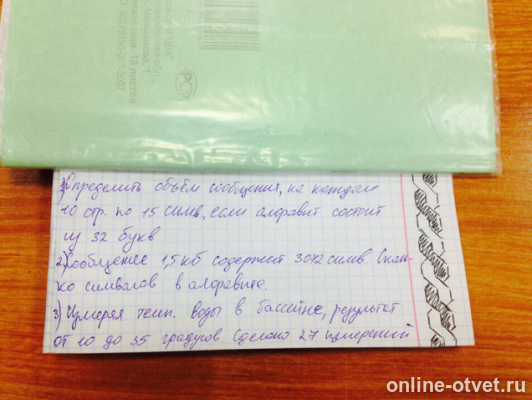 1) Определить объём сообщения, на каждом
10 стр. по 15 симв, если алфавит состоит
из 32 букв
2) Сообщение 15 кб содержит 3072 симв. Сколь-
ко символов в алфавите.
3) Измеряя темп. воды в бассейне, результат
от 10 до 35 градусов. Сделано 27 измерений
online-otvet.ru